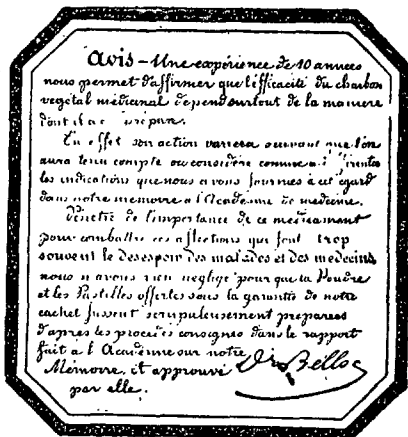 Avis – Une expérience de 10 années
nous permet d'affirmer que l'efficacité du charbon
végétal médicinal dépend surtout de la manière
dont il a
En effet son action variera suivant que l'on
aura tenu compte ou considéré comme
les indications que nous avons fournies à cet égard
dans notre mémoire à l'Académie de médecine.
Pénétré de l'importance de ce médicament
pour combattre ces affections qui font trop
souvent le désespoir des malades et des médecins,
nous n'avons rien négligé pour que la Poudre
et les Pastilles offertes sous la garantie de notre
cachet fussent scrupuleusement préparées
d'après les procédés consignés dans le rapport
fait à l'Académie sur notre
Mémoire, et approuvé Dr Belloc
par elle.